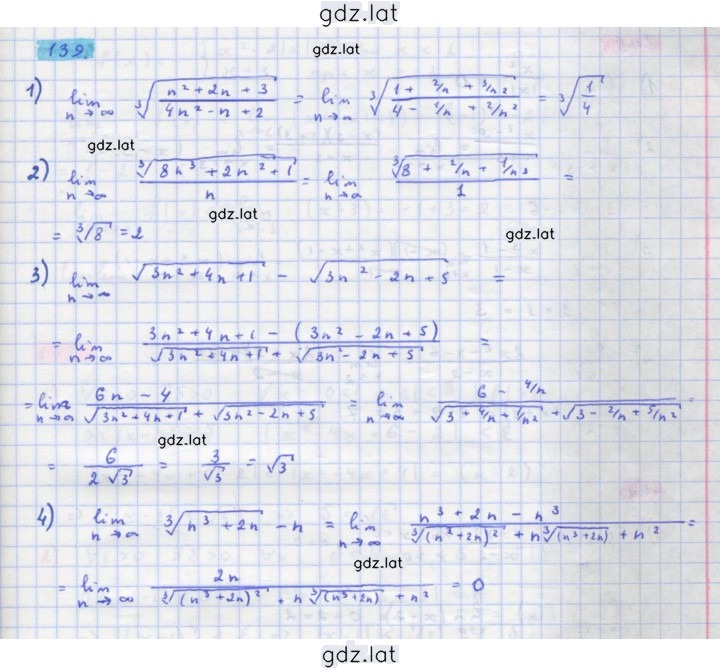 gdz.lat
139.
gdz.lat
1) lim n→∞ ∛((n² + 2n + 3)/(4n² - n + 2)) = lim n→∞ ∛((1 + 2/n + 3/n²)/(4 - 1/n + 2/n²)) = ∛(1/4)
gdz.lat
2) lim n→∞ ∛(8n³ + 2n² + 1)/n = lim n→∞ ∛(8 + 2/n + 1/n³)/1 =
gdz.lat
= ∛8 = 2
gdz.lat
3) lim n→∞ √(3n² + 4n + 1) - √(3n² - 2n + 5) =
= lim n→∞ (3n² + 4n + 1 - (3n² - 2n + 5))/(√(3n² + 4n + 1) + √(3n² - 2n + 5)) =
= lim n→∞ (6n - 4)/(√(3n² + 4n + 1) + √(3n² - 2n + 5)) = lim n→∞ (6 - 4/n)/(√(3 + 4/n + 1/n²) + √(3 - 2/n + 5/n²)) =
gdz.lat
= 6/(2√3) = 3/√3 = √3
4) lim n→∞ ∛(n³ + 2n) - n = lim n→∞ (n³ + 2n - n³)/(∛((n³ + 2n)²) + n∛(n³ + 2n) + n²) =
gdz.lat
= lim n→∞ 2n/(∛((n³ + 2n)²) + n∛(n³ + 2n) + n²) = 0
gdz.lat